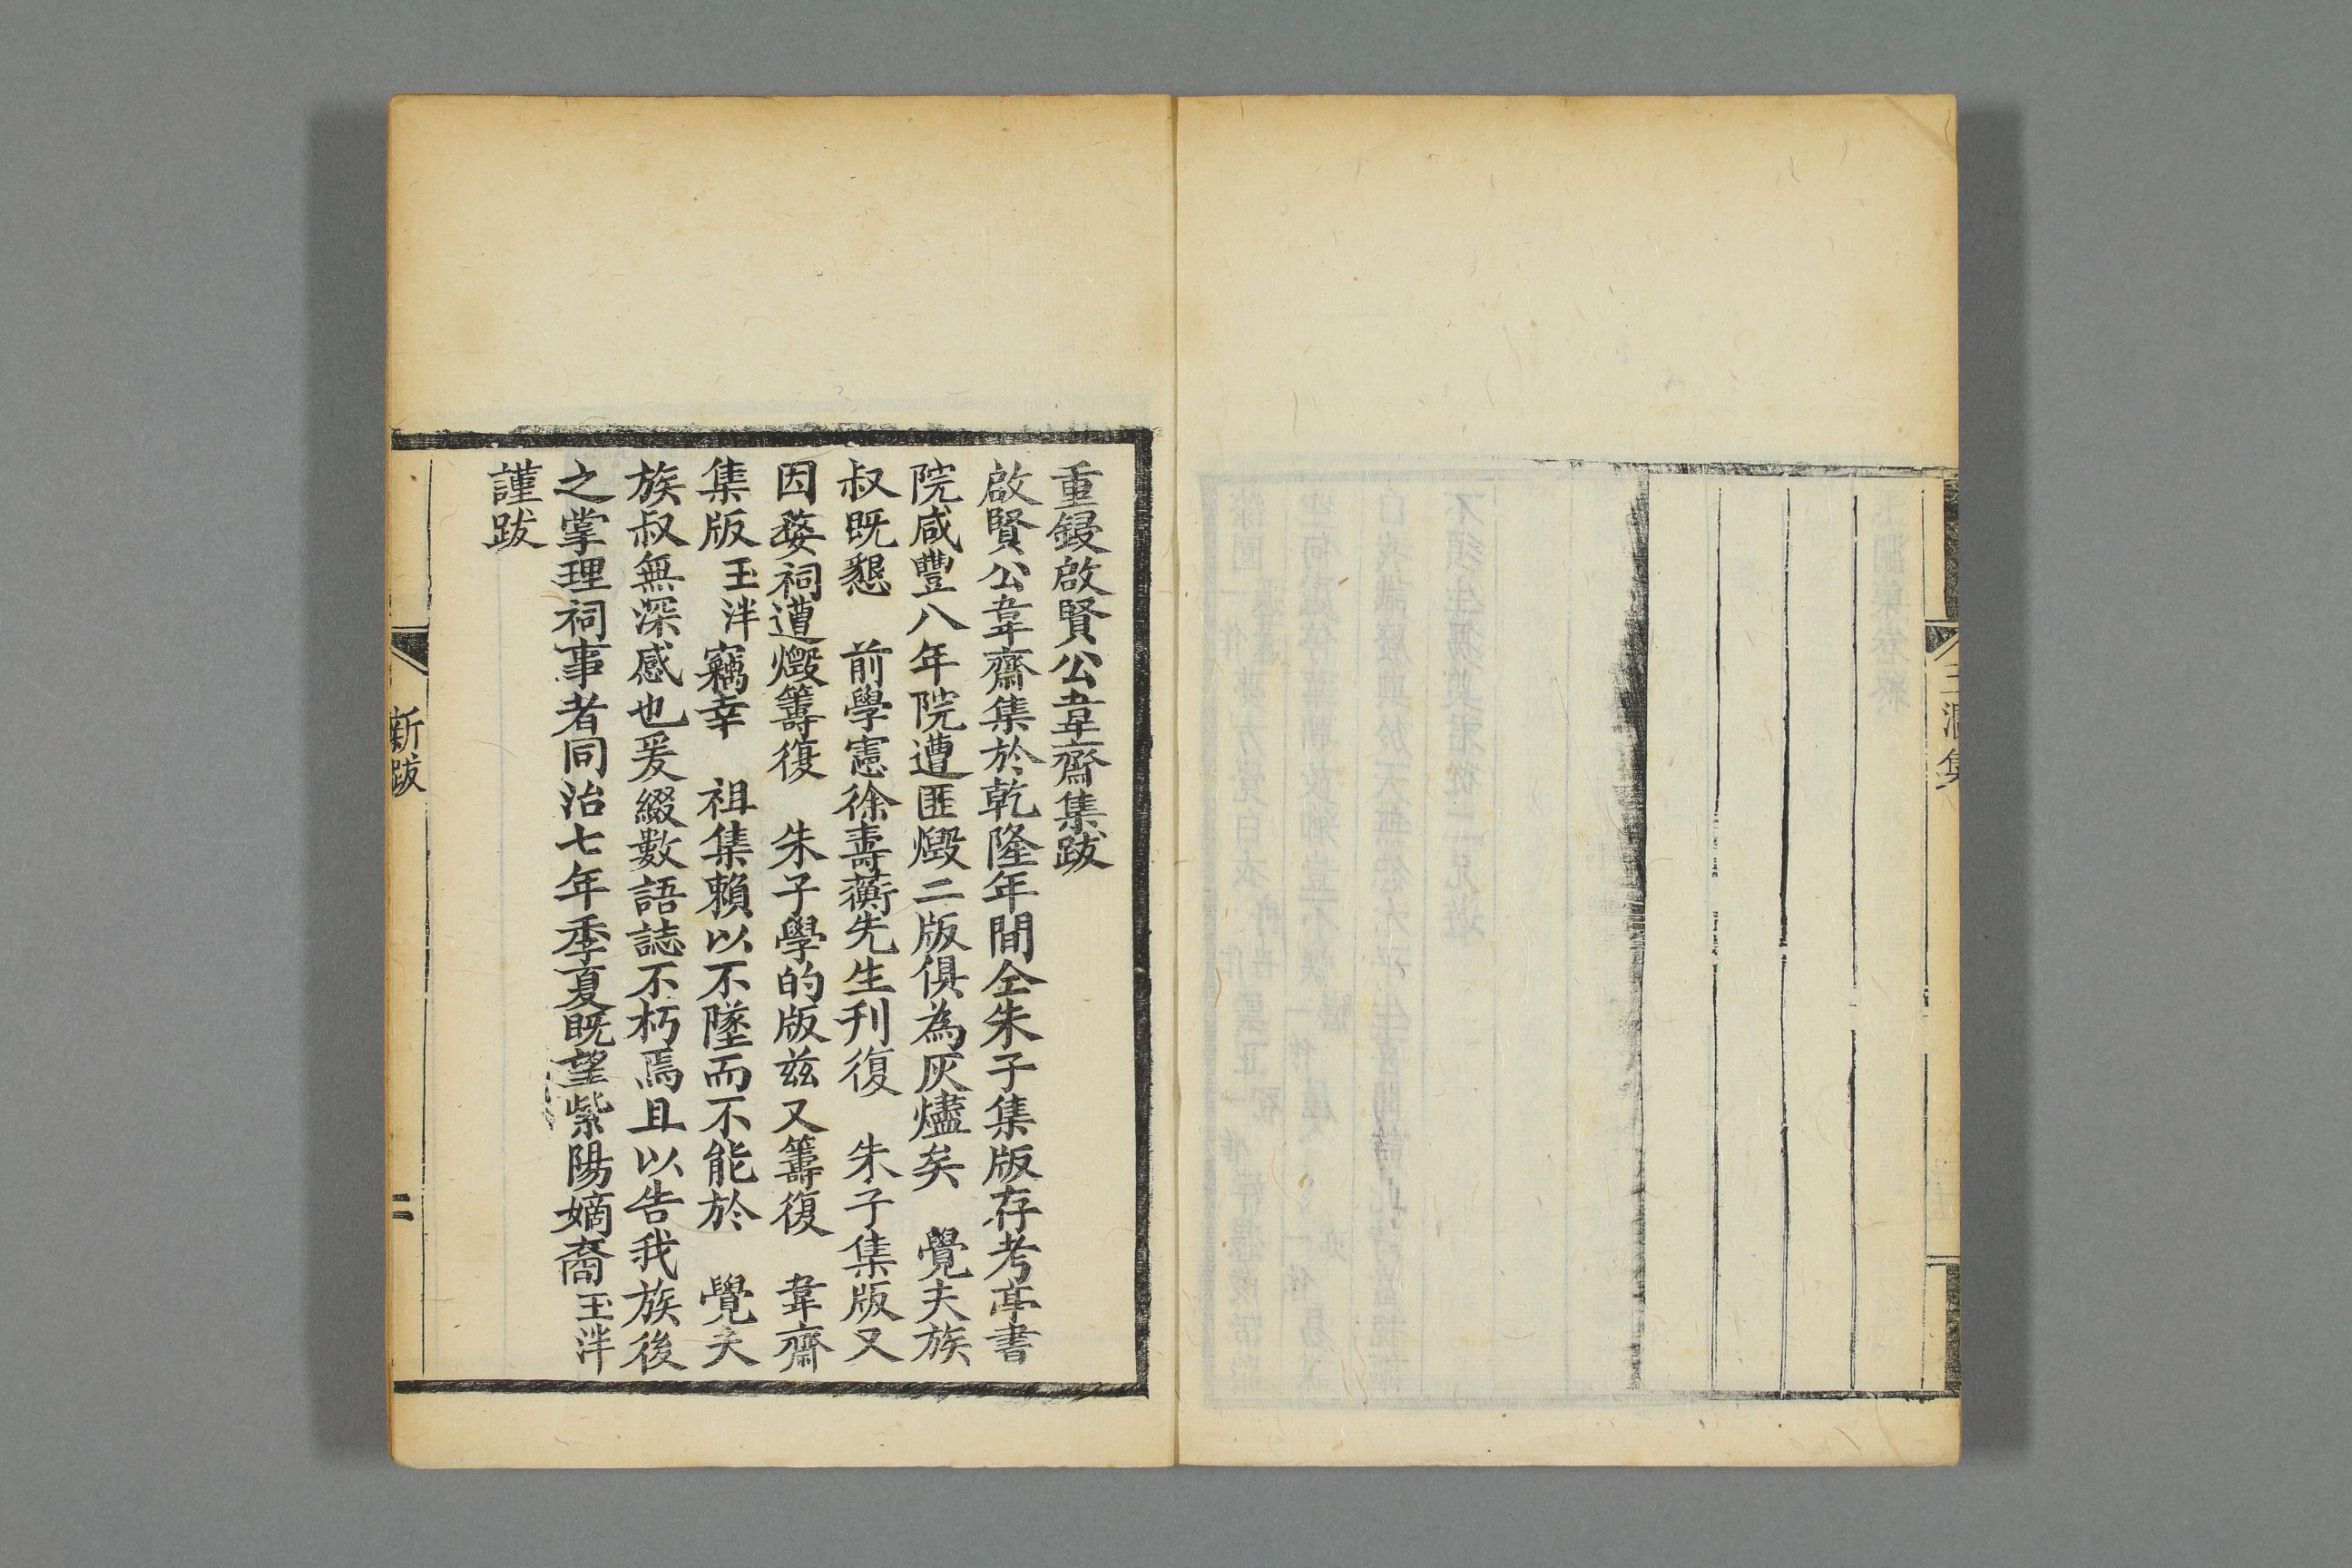 玉瀾集
重鋟啟賢公韋齋集跋
啟賢公韋齋集於乾隆年間仝朱子集版存考亭書
院咸豐八年院遭匪燬二版俱為灰燼矣　覺夫族
叔既懇　前學憲徐壽蘅先生刊復　朱子集版又
因婺祠遭燬籌復　朱子學的版兹又籌復　韋齋
集版玉泮竊幸　祖集賴以不墜而不能於　覺夫
族叔無深感也爰綴數語誌不朽焉且以告我族後
之掌理祠事者同治七年季夏既望紫陽嫡裔玉泮
謹跋
新跋
二